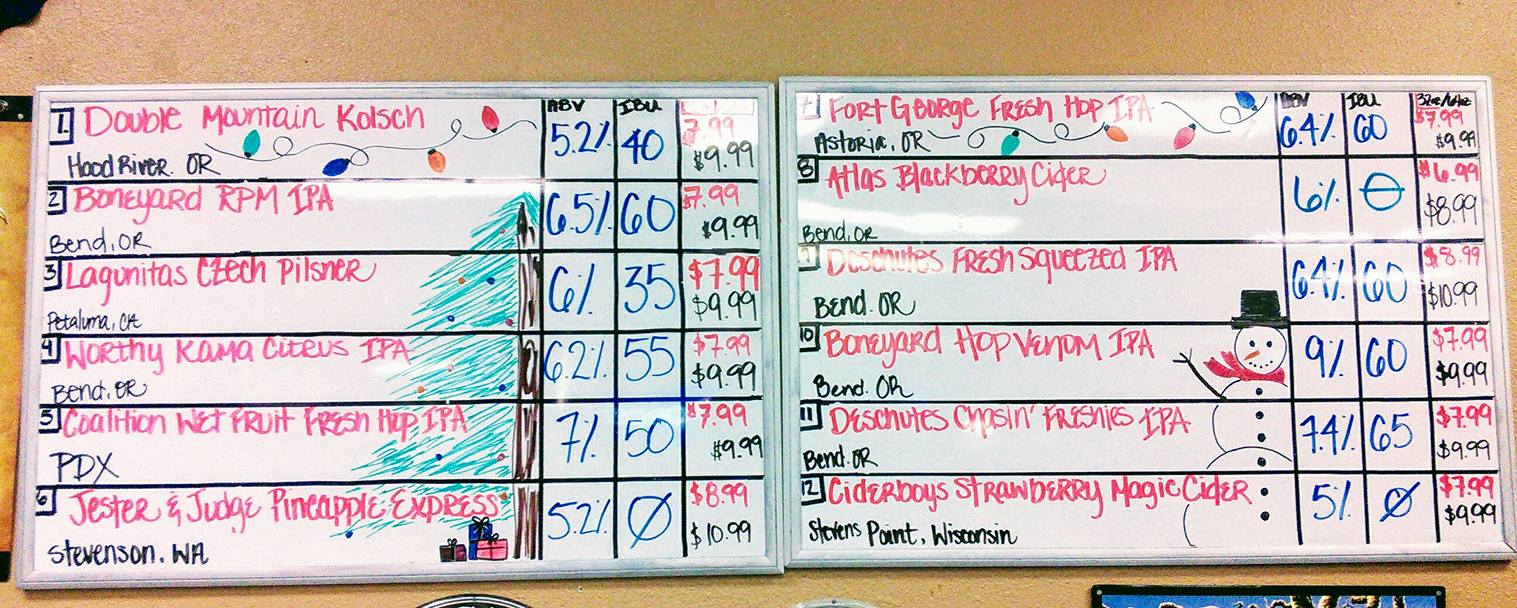 ABV IBU
1 Double Mountain Kolsch 5.2% 40 7.99
Hood River. OR $9.99
2 Boneyard RPM IPA 6.5% 60 $7.99
Bend, OR $9.99
3 Lagunitas Czech Pilsner 6% 35 $7.99
Petaluma, CA $9.99
4 Worthy Kama Citrus IPA 6.2% 55 $7.99
Bend, OR $9.99
5 Coalition Wet Fruit Fresh Hop IPA 7% 50 $7.99
PDX $9.99
6 Jester & Judge Pineapple Express 5.2% Ø $8.99
Stevenson, WA $10.99
ABV IBU 32oz/64oz
7 Fort George Fresh Hop IPA 6.4% 60 $7.99
Astoria, OR $9.99
8 Atlas Blackberry Cider 6% Ø $6.99
Bend, OR $8.99
9 Deschutes Fresh Squeezed IPA 6.4% 60 $8.99
Bend. OR $10.99
10 Boneyard Hop Venom IPA 9% 60 $7.99
Bend. OR $9.99
11 Deschutes Chasin' Freshies IPA 7.4% 65 $7.99
Bend. OR $9.99
12 Ciderboys Strawberry Magic Cider 5% Ø $7.99
Stevens Point, Wisconsin $9.99